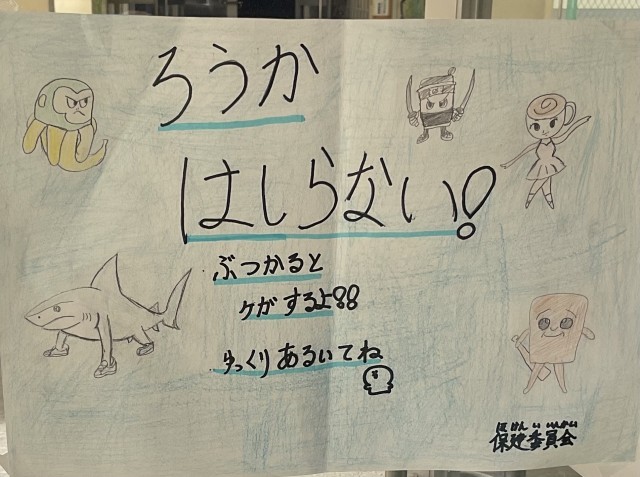 ろうか
はしらない!
ぶつかると
ケガするよ!!
ゆっくりあるいてね
ほけんいいんかい
保健委員会